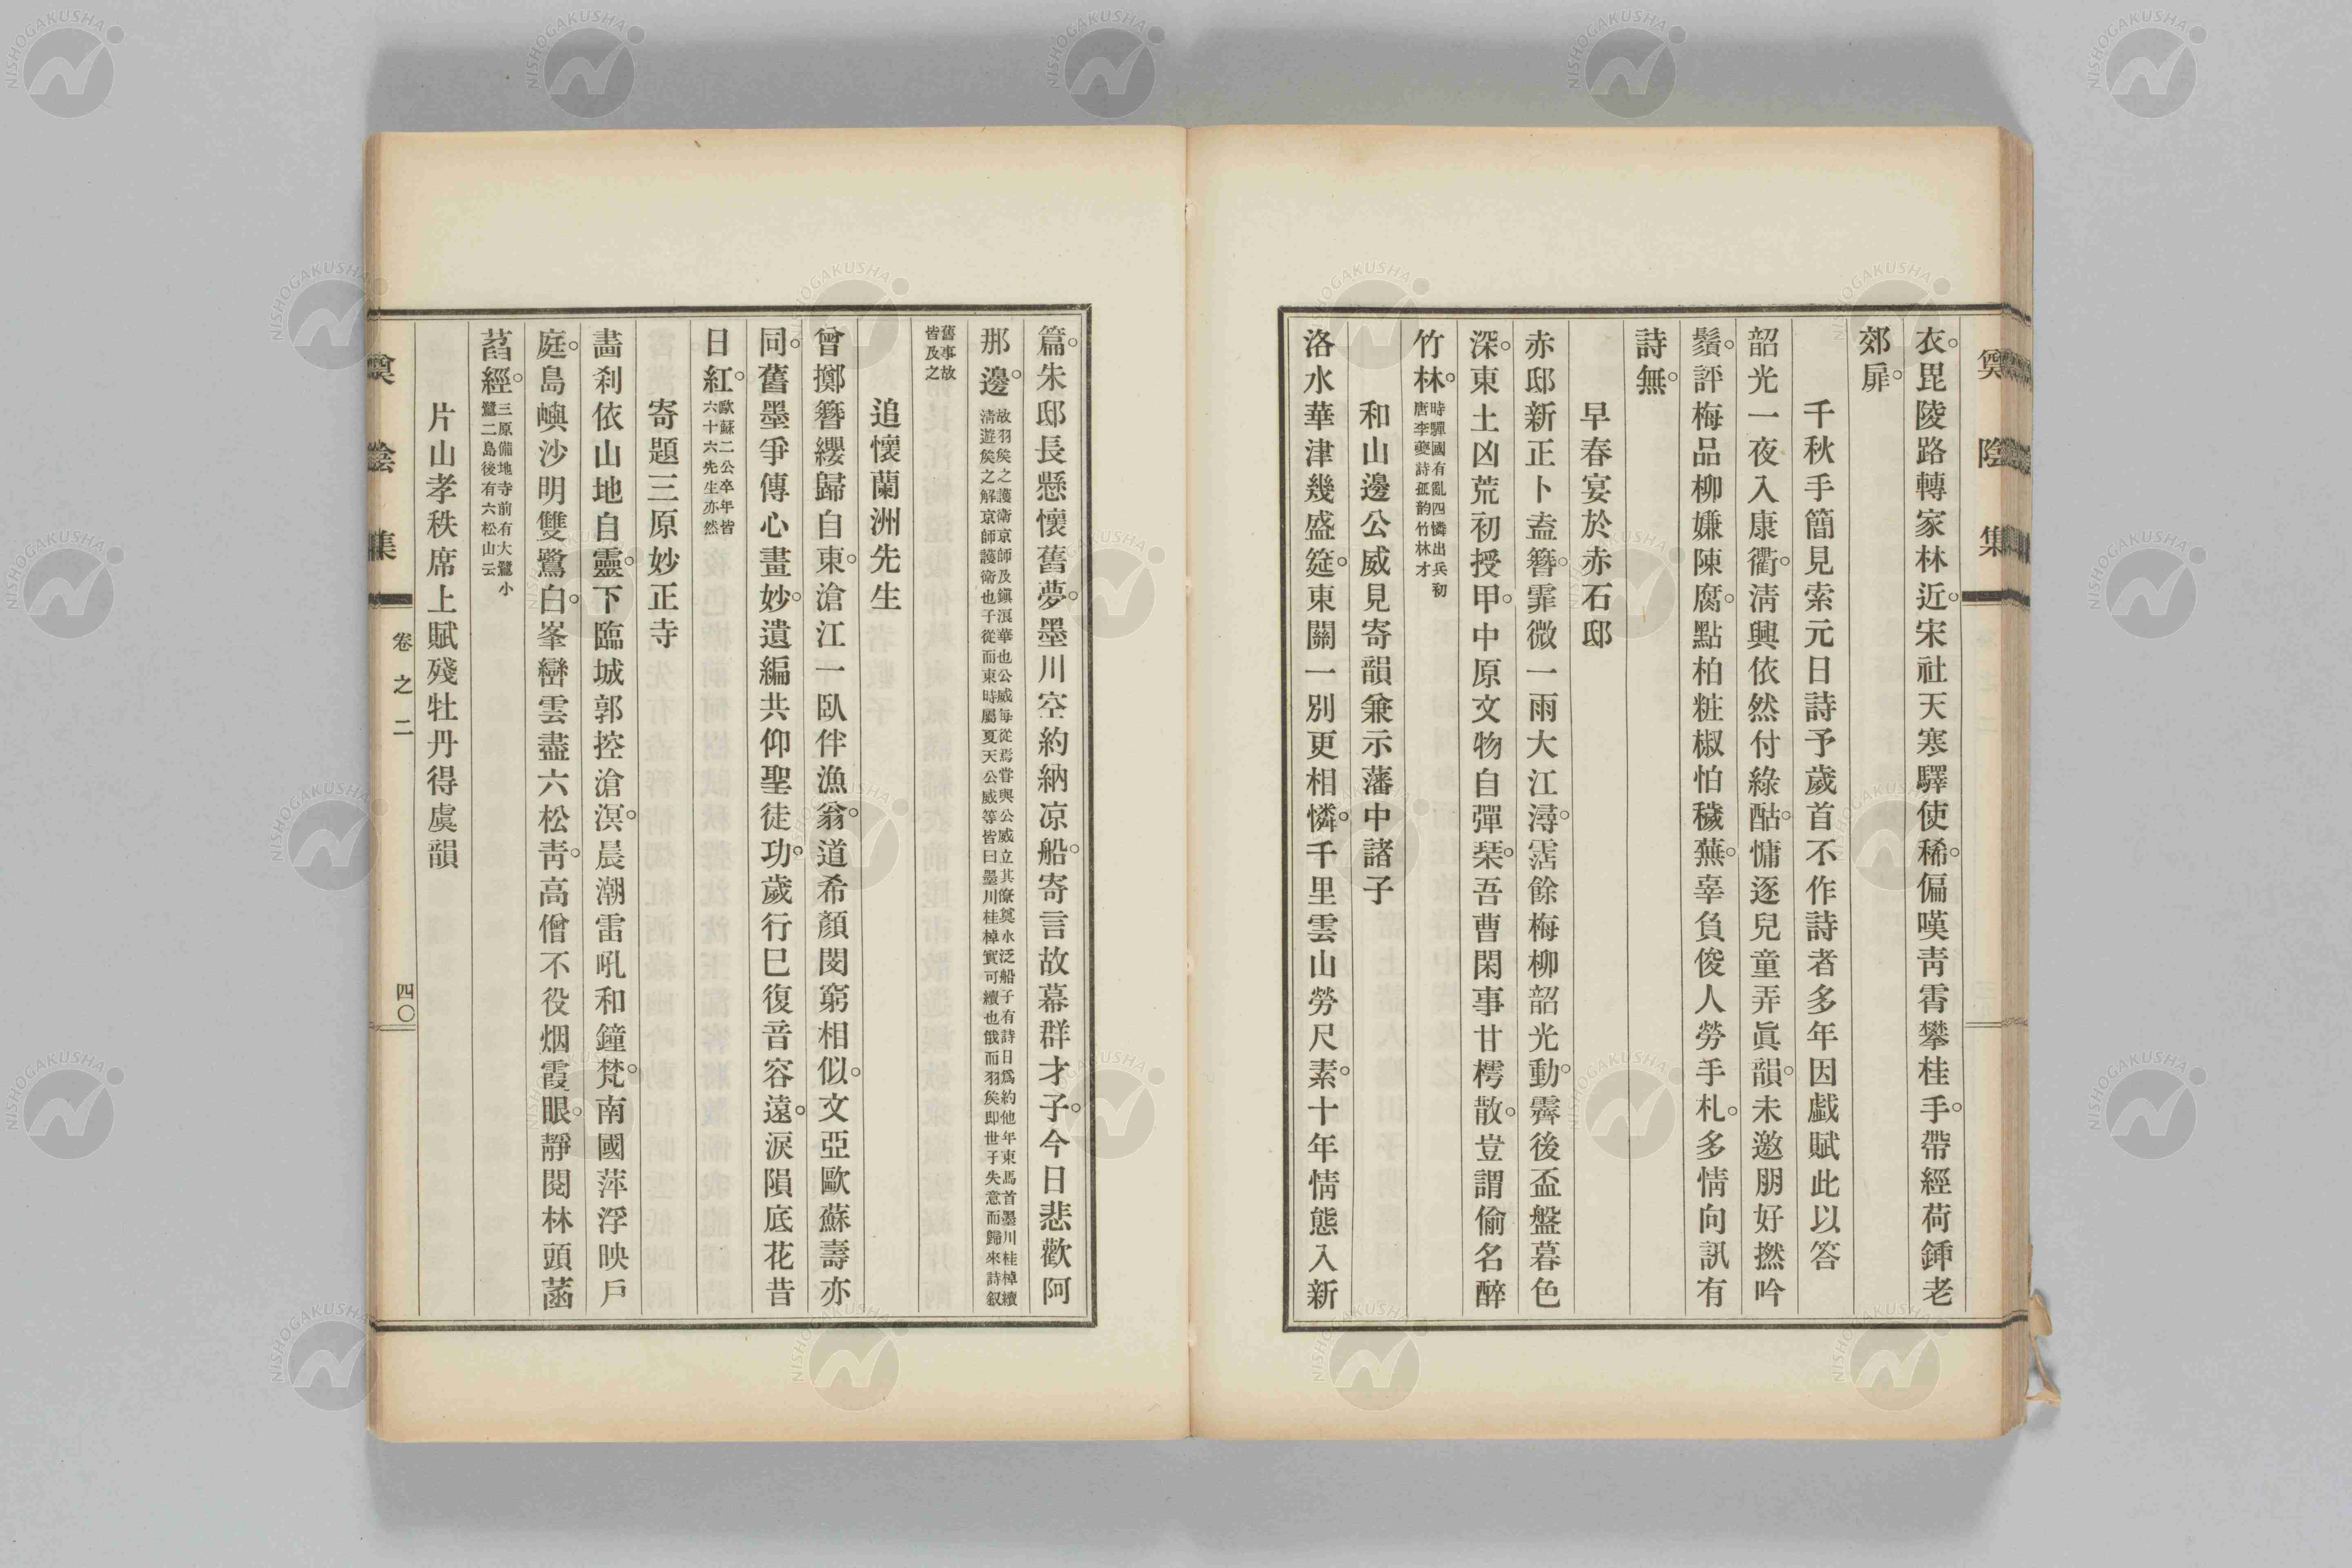 奠陰集
衣。毘陵路轉家林近。宋社天寒驛使稀。偏嘆靑霄攀桂手。帶經荷鍤老
郊扉。
千秋手簡見索元日詩予歲首不作詩者多年因戱賦此以答
韶光一夜入康衢。淸興依然付綠酤。慵逐兒童弄眞韻。未邀朋好撚吟
鬚。評梅品柳嫌陳腐。點柏粧椒怕穢蕪。辜負俊人勞手札。多情向訊有
詩無。
早春宴於赤石邸
赤邸新正卜盍簪。霏微一雨大江潯。霑餘梅柳韶光動。霽後盃盤暮色
深。東土凶荒初授甲。中原文物自彈琹。吾曹閑事甘樗散。豈謂偷名醉
竹林。
時驒國有亂四憐出兵初
唐李夔詩孤韵竹林才
和山邊公威見寄韻兼示藩中諸子
洛水華津幾盛筵。東關一別更相憐。千里雲山勞尺素。十年情態入新
篇。朱邸長懸懷舊夢。墨川空約納凉船。寄言故幕群才子。今日悲歡阿
那邊。
故羽矦之護衛京師及鎭浪華也公威每從焉甞與公威立其僚奠水泛船子有詩日爲約他年東馬首墨川桂棹續
淸遊矦之解京師護衛也子從而東時屬夏天公威等皆曰墨川桂棹實可續也俄而羽矦即世子失意而歸來詩叙
舊事故
皆及之
追懷蘭洲先生
曾擲簪纓歸自東。滄江一臥伴漁翁。道希顏閔窮相似。文亞歐蘇壽亦
同。舊墨爭傳心畫妙。遺編共仰聖徒功。歲行巳復音容遠。淚隕底花昔
日紅。
歐蘇二公卒年皆
六十六先生亦然
寄題三原妙正寺
畵刹依山地自靈。下臨城郭控滄溟。晨潮雷吼和鐘梵。南國萍浮映戶
庭。島嶼沙明雙鷺白。峯巒雲盡六松靑。高僧不役烟霞眼。靜閱林頭菡
萏經。
三原備地寺前有大鷺小
鷺二島後有六松山云
片山孝秩席上賦殘牡丹得虞韻
奠陰集
卷之二
四〇
NISHOGAKUSHA